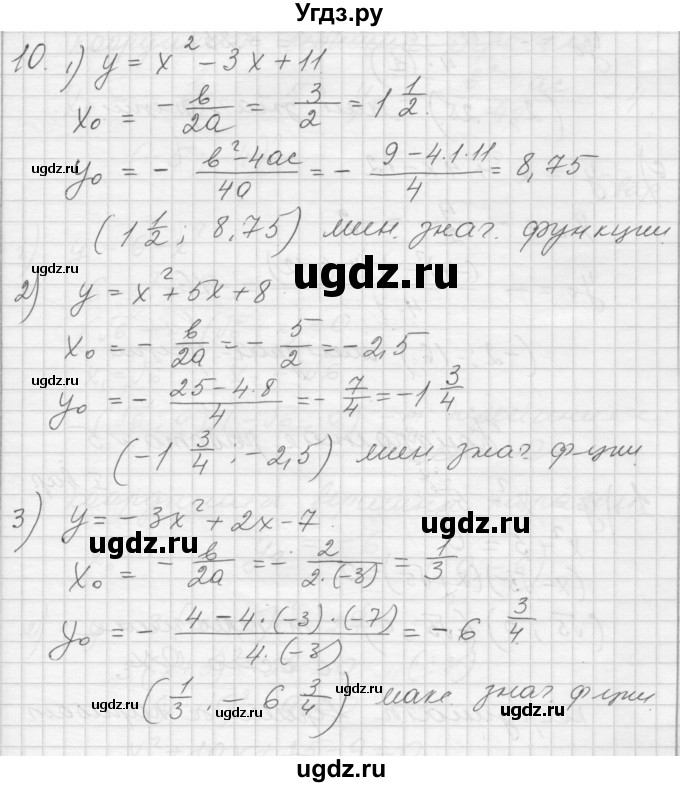 Угдз.ру
10. 1) y = x² - 3x + 11
x₀ = - в/2a = 3/2 = 1 1/2.
ugdz.ru
y₀ = - в²-4ac/4a = - 9-4·1·11/4 = 8,75
(1 1/2; 8,75) мин. знач. функции
ugdz.ru ugdz.ru
2) y = x² + 5x + 8
x₀ = - в/2a = - 5/2 = -2,5
ugdz.ru
y₀ = - 25-4·8/4 = - 7/4 = -1 3/4
(-1 3/4; -2,5) мин. знач. ф-ции
3) y = -3x² + 2x - 7
ugdz.ru ugdz.ru
x₀ = - в/2a = - 2/2·(-3) = 1/3
y₀ = - 4-4·(-3)·(-7)/4·(-3) = -6 3/4
(1/3; -6 3/4) макс. знач ф-ции
ugdz.ru ugdz.ru ugdz.ru
ugdz.ru